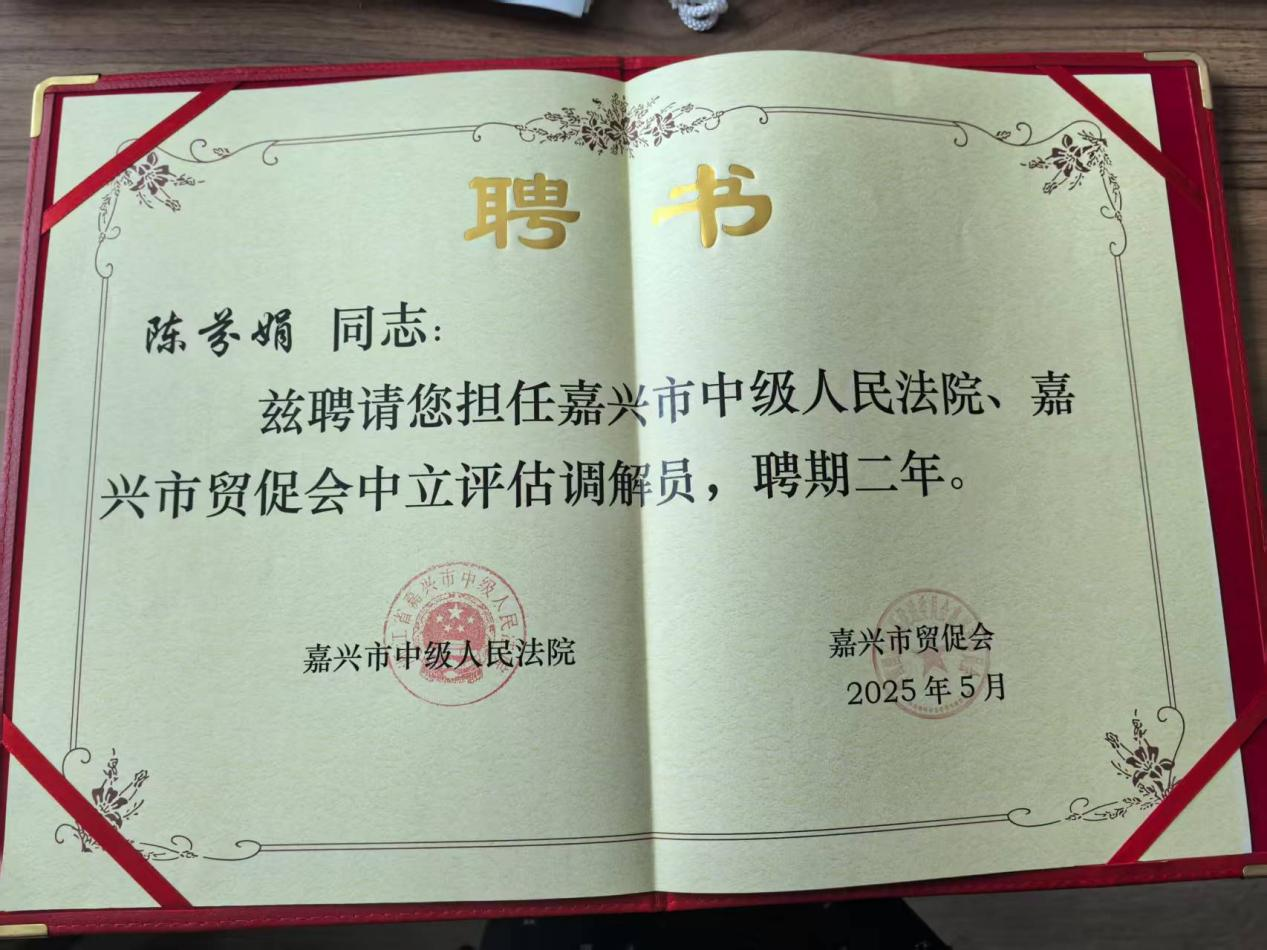 聘书
陈芬娟 同志：
兹聘请您担任嘉兴市中级人民法院、嘉
兴市贸促会中立评估调解员，聘期二年。
江省嘉兴市中级人民法
嘉兴市中级人民法院
嘉兴市贸促会
2025年5月